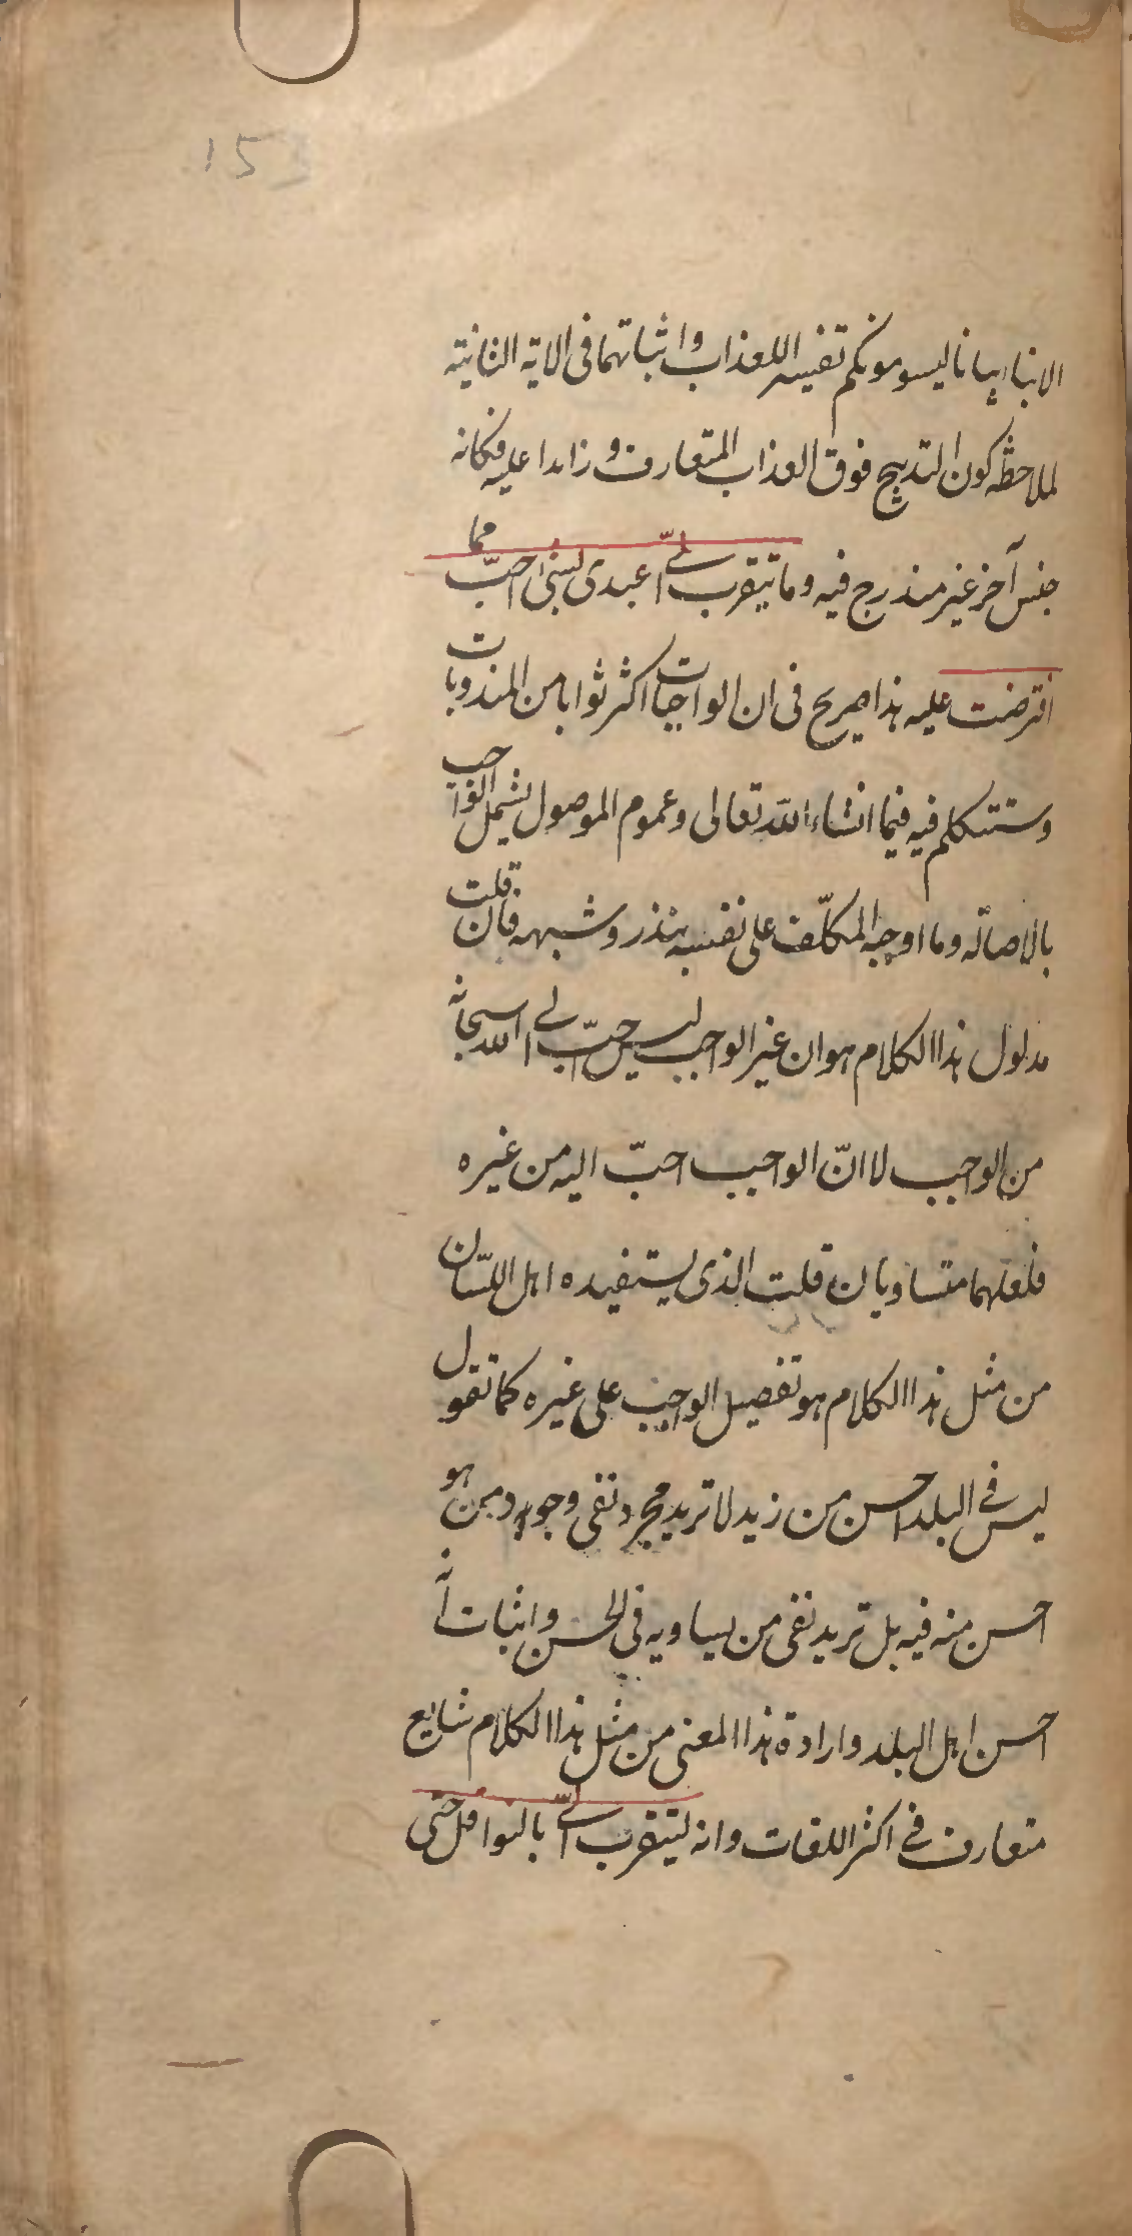 153
الابناء بيانا ليسومونكم تفسيرا للعذاب واثباتهما فى الاية الثانية
لملاحظة كون التذبيح فوق العذاب المتعارف وزايدا عليه فكانه
جنس آخر غير مندرج فيه وما يتقرب الىّ عبدى بشئ احبّ مما
افترضت عليه هذا صريح فى ان الواجبات اكثر ثوابا من المندوبات
وسنتكلم فيه فيما انشاء الله تعالى وعموم الموصول يشمل الواجب
بالاصالة وما اوجبه المكلّف على نفسه بنذر وشبهه فان قلت
مدلول هذا الكلام هو ان غير الواجب ليس احبّ الى الله سبحانه
من الواجب لا انّ الواجب احبّ اليه من غيره
فلعلهما متساويان قلت الذى يستفيده اهل اللسّان
من مثل هذا الكلام هو تفضيل الواجب على غيره كما تقول
ليس فى البلد احسن من زيد لا تريد مجرد نفى وجود من هو
احسن منه فيه بل تريد نفى من يساويه فى الحسن واثبات انه
احسن اهل البلد وارادة هذا المعنى من مثل هذا الكلام شايع
متعارف فى اكثر اللغات وانه ليتقرب الىّ بالنوافل حتى